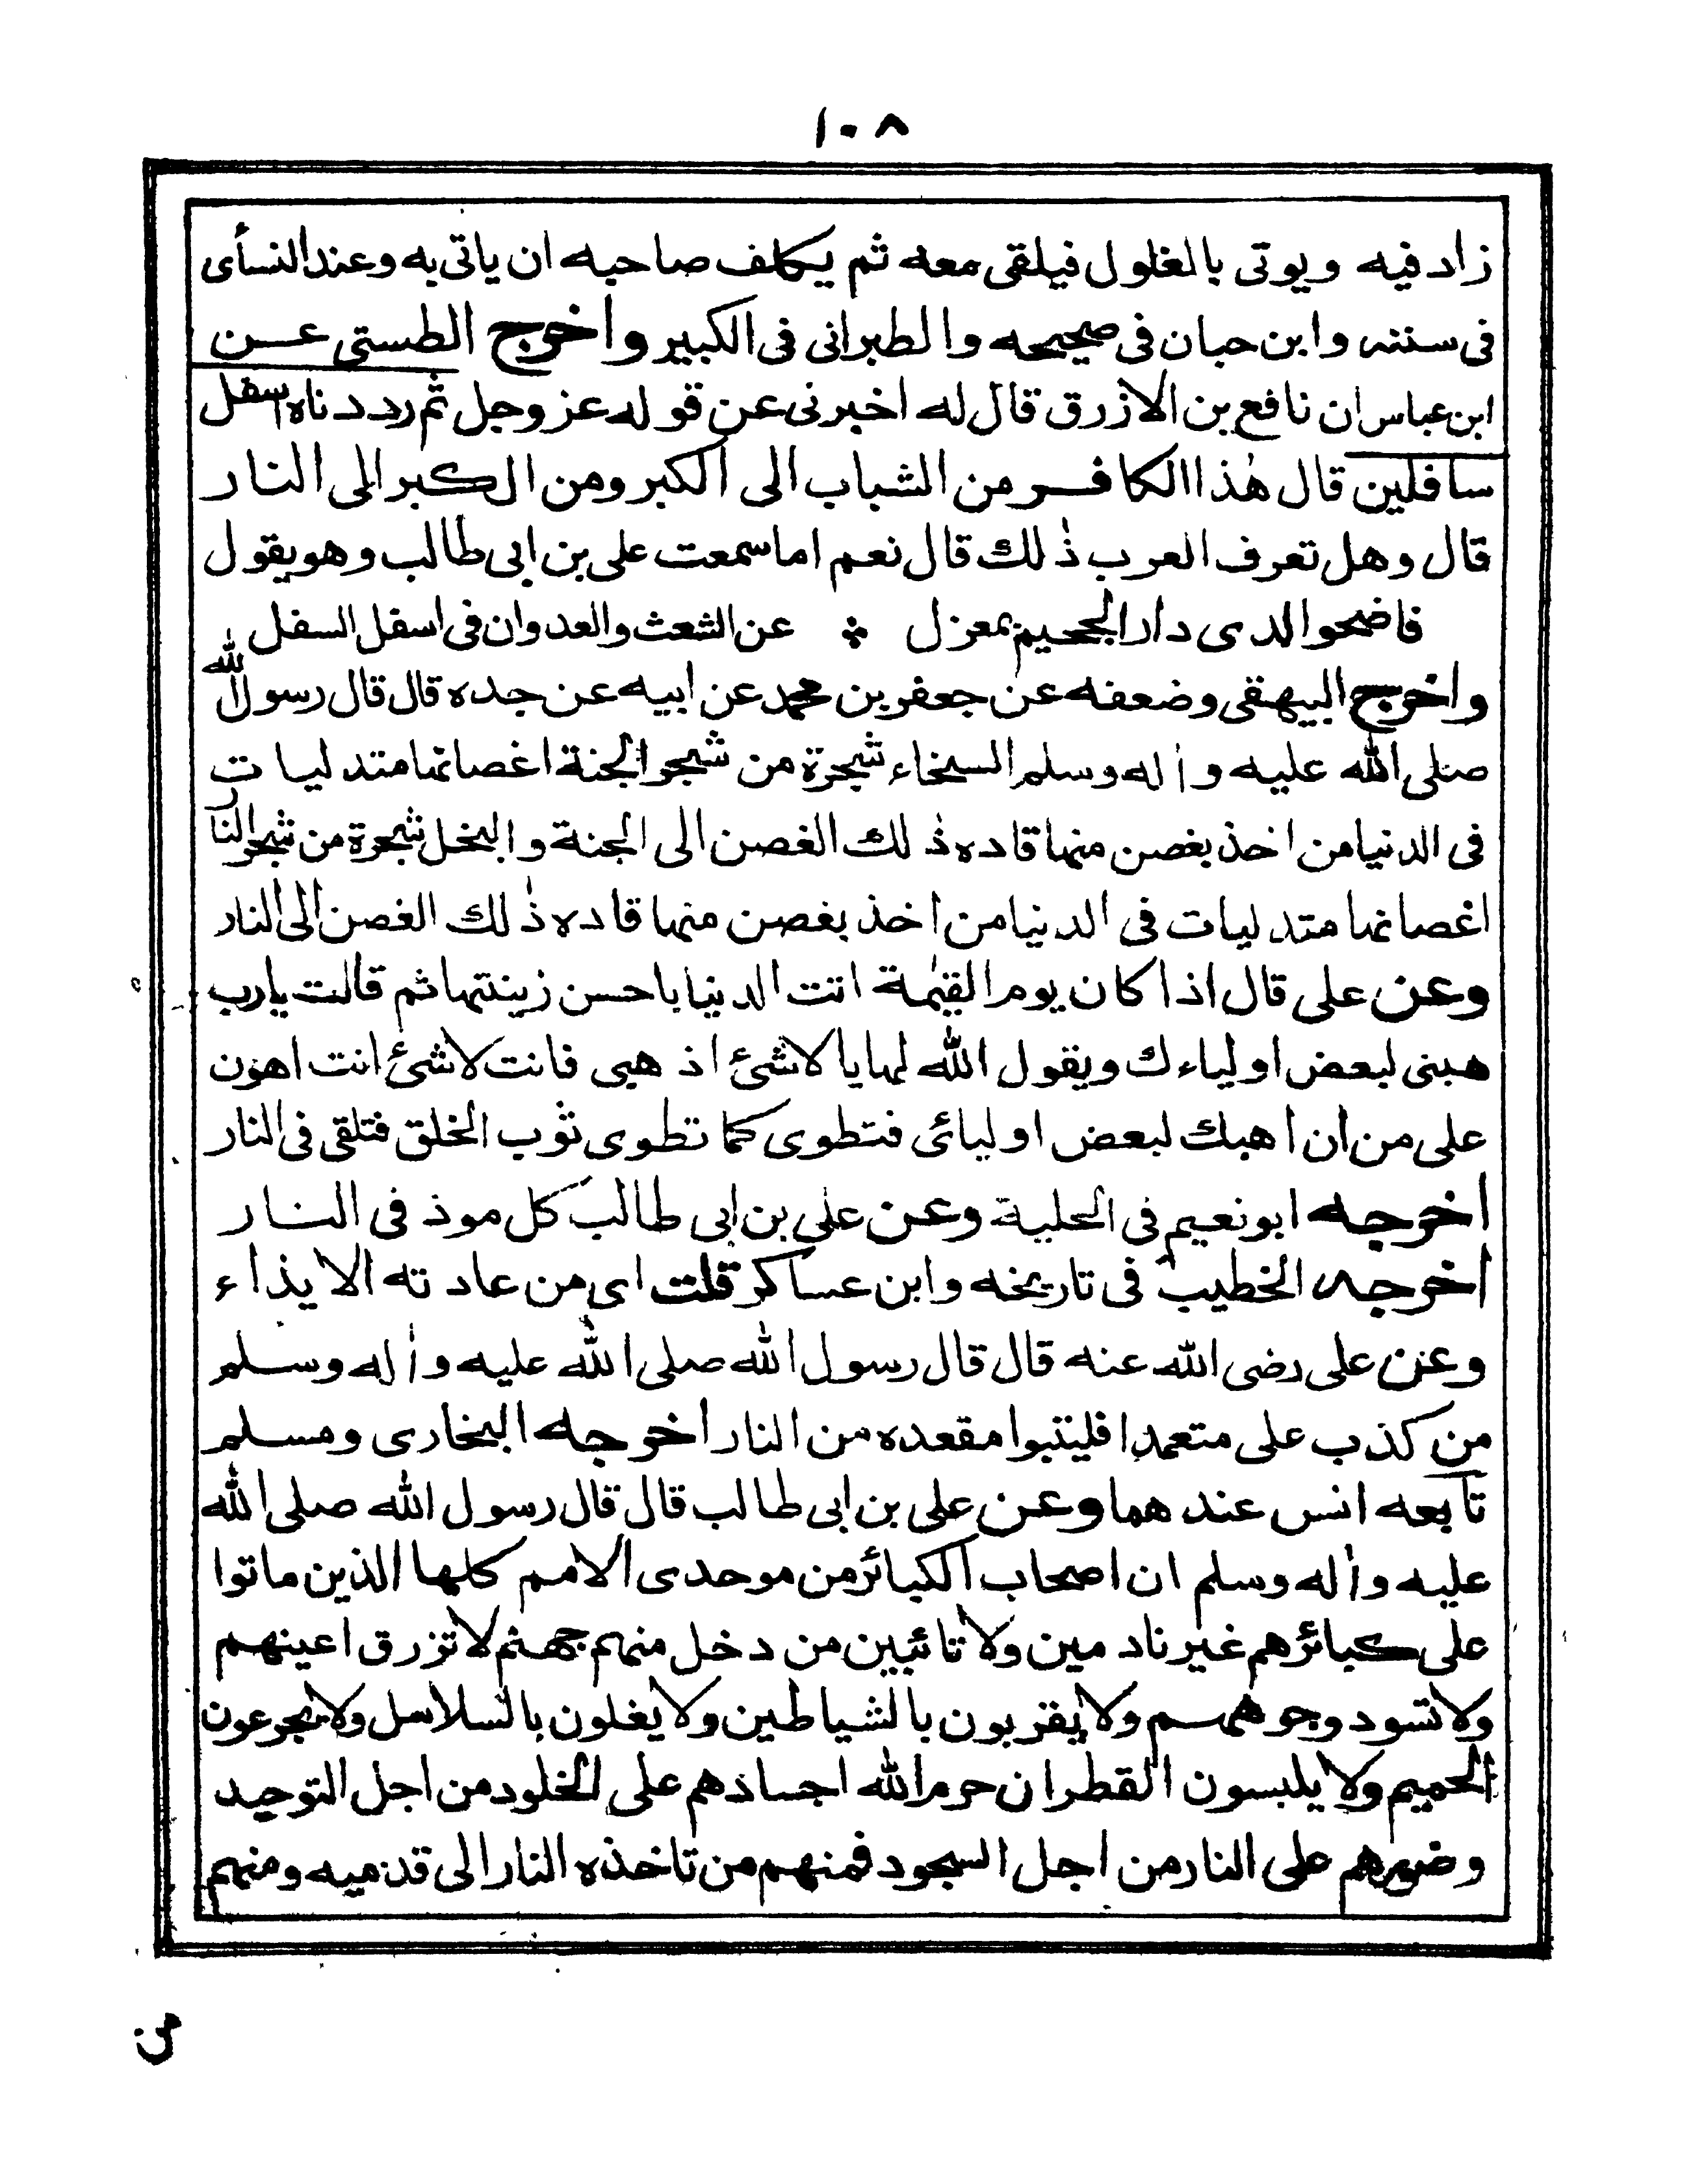 ١٠٨
زاد فيه ويوتى بالغلول فيلقى معه ثم يكلف صاحبه ان ياتى به وعند النسأى
فى سننه وابن حبان فى صحيحه والطبرانى فى الكبير واخرج الطستى عن
ابن عباس ان نافع بن الازرق قال له اخبرنى عن قوله عز وجل ثم رددناه اسفل
سافلين قال هٰذا الكافر من الشباب الى الكبر ومن الكبر الى النار
قال وهل تعرف العرب ذٰلك قال نعم اما سمعت على بن ابى طالب وهو يقول
فاضحوا لدى دار الجحيم بمعزل ؞ عن الشعث والعدوان فى اسفل السفل
واخرج البيهقى وضعفه عن جعفر بن محمد عن ابيه عن جده قال قال رسول الله
صلى الله عليه واٰله وسلم السخاء شجرة من شجر الجنة اغصانها متدليات
فى الدنيا من اخذ بغصن منها قاده ذٰلك الغصن الى الجنة والبخل شجرة من شجر النار
اغصانها متدليات فى الدنيا من اخذ بغصن منها قاده ذٰلك الغصن الى النار
وعن على قال اذا كان يوم القيٰمة اتت الدنيا باحسن زينتها ثم قالت يا رب
هبنى لبعض اولياءك ويقول الله لها يا لاشئ اذهبى فانت لاشئ انت اهون
على من ان اهبك لبعض اوليائى فتطوى كما تطوى ثوب الخلق فتلقى فى النار
اخرجه ابو نعيم فى الحلية وعن على بن ابى طالب كل موذ فى النار
اخرجه الخطيب فى تاريخه وابن عساكر قلت اى من عادته الايذاء
وعن على رضى الله عنه قال قال رسول الله صلى الله عليه واٰله وسلم
من كذب على متعمدا فليتبوا مقعده من النار اخرجه البخارى ومسلم
تابعه انس عندهما وعن على بن ابى طالب قال قال رسول الله صلى الله
عليه واٰله وسلم ان اصحاب الكبائر من موحدى الامم كلها الذين ماتوا
على كبائرهم غير نادمين ولا تائبين من دخل منهم جهنم لا تزرق اعينهم
ولا تسود وجوههم ولا يقربون بالشياطين ولا يغلون بالسلاسل ولا يجرعون
الحميم ولا يلبسون القطران حرم الله اجسادهم على الخلود من اجل التوحيد
وصورهم على النار من اجل السجود فمنهم من تاخذه النار الى قدميه ومنهم
من